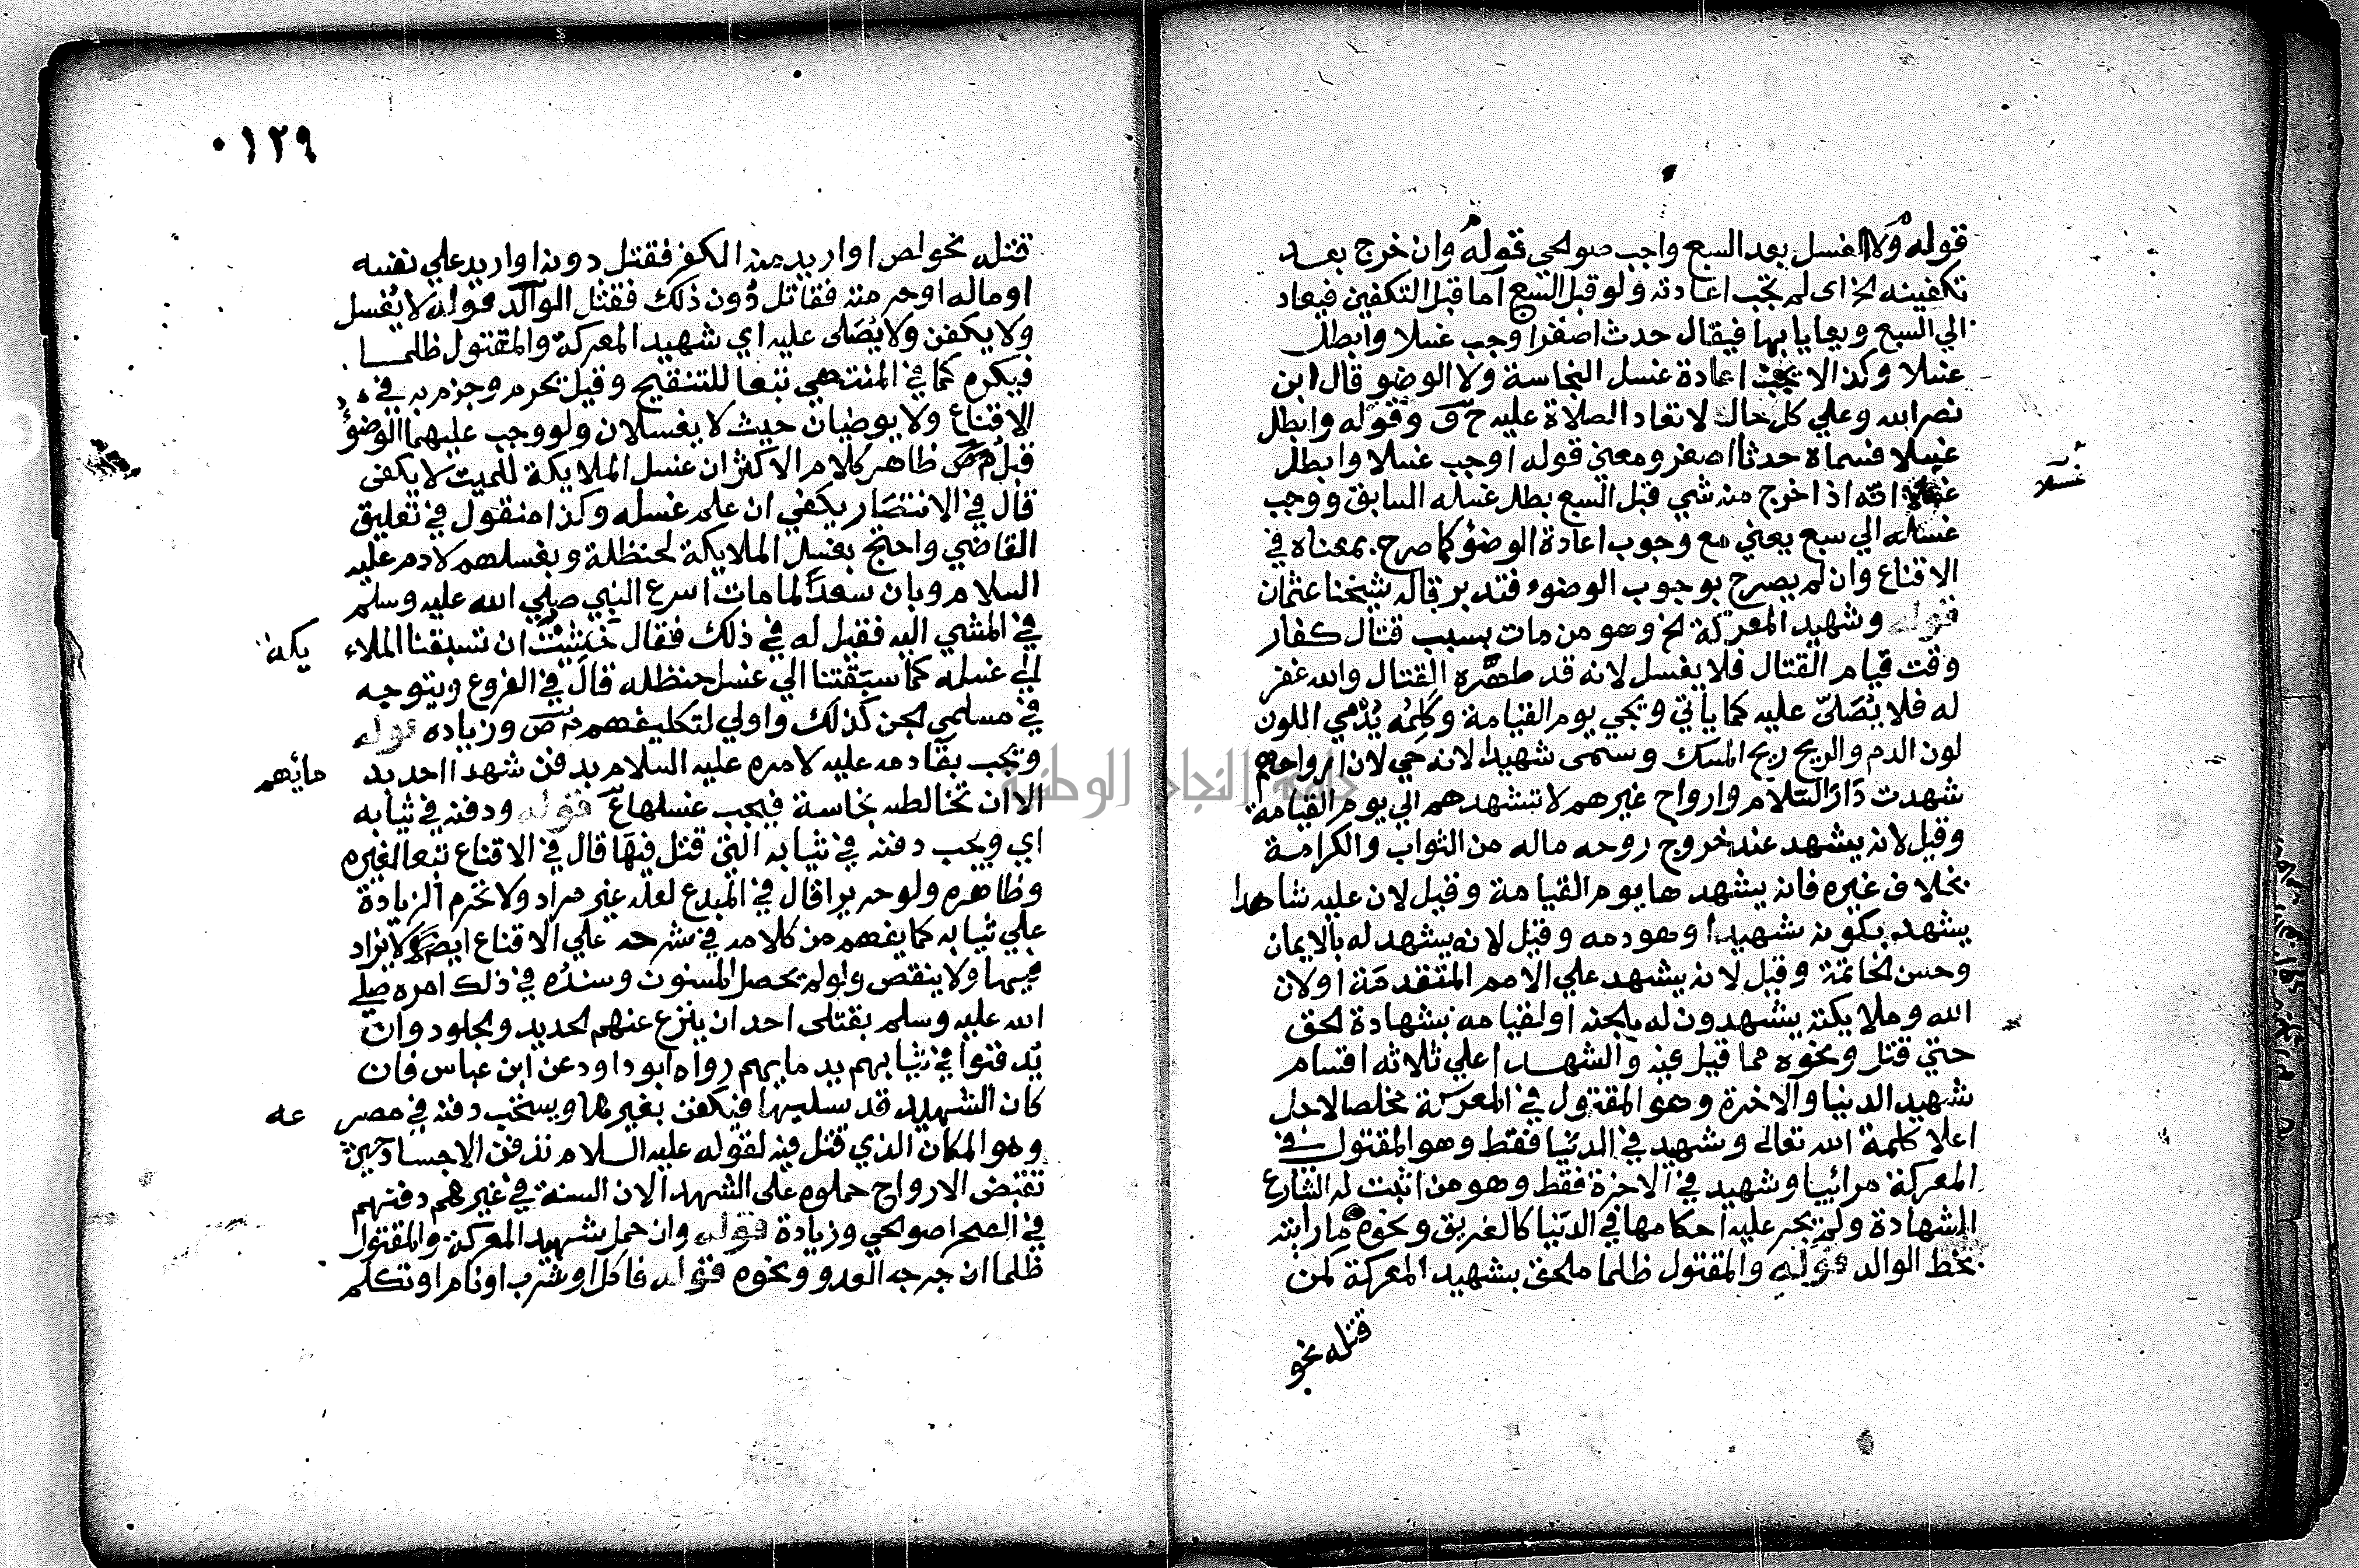 قوله ولا الغسل بعد السبع واجب صولحي قوله وان خرج بعد
تكفينه الخ اى لم تجب اعادته ولو قبل السبع اما قبل التكفين فيعاد
الي السبع ويعايا بها فيقال حدث اصغر اوجب غسلا وابطل
غسلا وكذا لا تجب اعادة غسل النجاسة ولا الوضو قال ابن
نصر الله وعلي كل حال لا تعاد الصلاة عليه ح ق وقوله وابطل
غسلا فسماه حدثا اصغر ومعني قوله اوجب غسلا وابطل
غسلا انه اذا خرج منه شي قبل السبع بطل غسله السابق ووجب
غسلا
غسله الي سبع يعني مع وجوب اعادة الوضؤ كما صرح بمعناه في
الاقناع وان لم يصرح بوجوب الوضوء فتدبر قاله شيخنا عثمان
قوله وشهيد المعركة الخ وهو من مات بسبب قتال كفار
وقت قيام القتال فلا يغسل لانه قد طهره القتال والله غفر
له فلا يُصَلىّ عليه كما ياتي ويجي يوم القيامة وكلمُه يُدْمي اللون
لون الدم والريح ريح المسك وسمى شهيدا لانه حي لان ارواحهم
شهدت دَارَ السَّلام وارواح غيرهم لا تشهدهم الي يوم القيامة
وقيل لانه يشهد عند خروج روحه ماله من الثواب والكرامة
بخلاف غيره فانه يشهدها يوم القيامة وقيل لان عليه شاهدا
يشهد بكونه شهيدا وهو دمه وقيل لانه يشهد له بالايمان
وحسن الخاتمة وقيل لانه يشهد علي الامم المتقدمَة او لان
الله وملايكته يشهدون له بالجنه او لقيامه بشهادة الحق
حتي قتل ونحوه مما قيل فيه والشهدا علي ثلاثه اقسام
شهيد الدنيا والاخرة وهو المقتول في المعركة مخلصا لاجل
اعلا كلمة الله تعالى وشهيد في الدنيا فقط وهو المقتول في
المعركة مرائيا وشهيد في الاخرة فقط وهو من اثبت له الشارع
الشهادة ولم يجر عليه احكامها في الدنيا كالغريق ونحوه ما رايته
بخط الوالد قوله والمقتول ظلما ملحق بشهيد المعركة لمن
قتله نحو
٠١٢٩
قتله نحو لص او اريد منه الكفر فقتل دونه او اريد علي نفسه
او ماله او حرمته فقاتل دُون ذلك فقتل الوالد قوله لا يُغسل
ولا يكفن ولا يُصَلى عليه اي شهيد المعركة والمقتول ظلما
فيكره كما في المنتهي تبعا للتنقيح وقيل يحرم وجزم به في
الاقناع ولا يوضيان حيث لا يغسلان ولو وجب عليهما الوضؤ
قبل م ص ظاهر كلام الاكثر ان غسل الملايكة للميت لا يكفى
قال في الانتصَار يكفي ان علم غسله وكذا منقول في تعليق
القاضي واحتج بغسل الملايكة لحنظلة وبغسلهم لادم عليه
السلام وبان سعداً لما مات اسرع النبي صلي الله عليه وسلم
في المشي اليه فقيل له في ذلك فقال خشيت ان تسبقنا الملاء يكة
الي غسله كما سبقتنا الي غسل حنظله قال في الفروع ويتوجه
في مسلمي الجن كذلك واولي لتكليفهم م ص وزياده قوله
ويجب بقا دمه عليه لامره عليه السلام بدفن شهدا احد بد مائهم
الا ان تخالطه نجاسة فيجب غسلها ع قوله ودفنه في ثيابه
اي ويجب دفنه في ثيابه التي قتل فيها قال في الاقناع تبعا لغيره
وظاهره ولو حريرا قال في المبدع لعله غير مراد ولا تحرم الزيادة
علي ثيابه كما يفهم من كلامه في شرحه علي الاقناع ايضا ولا يزاد
فيها ولا ينقص ولو لم يحصل المسنون وسنده في ذلك امره صلي
الله عليه وسلم بقتلى احد ان ينزع عنهم الحديد والجلود وان
يُدفنوا في ثيابهم بدمايهم رواه ابو داود عن ابن عباس فان
كان الشهيد قد سلبها فيكفن بغيرها ويستحب دفنه في مصر عه
وهو المكان الذي قتل فيه لقوله عليه السلام تدفن الاجساد حيث
تقبض الارواح حملوه على الشهدا لان السنة في غيرهم دفنهم
في الصحرا صولحي وزيادة قوله وان حمل شهيد المعركة والمقتول
ظلما ان جرحه العدو ونحوه قوله فاكل او شرب او نام او تكلم